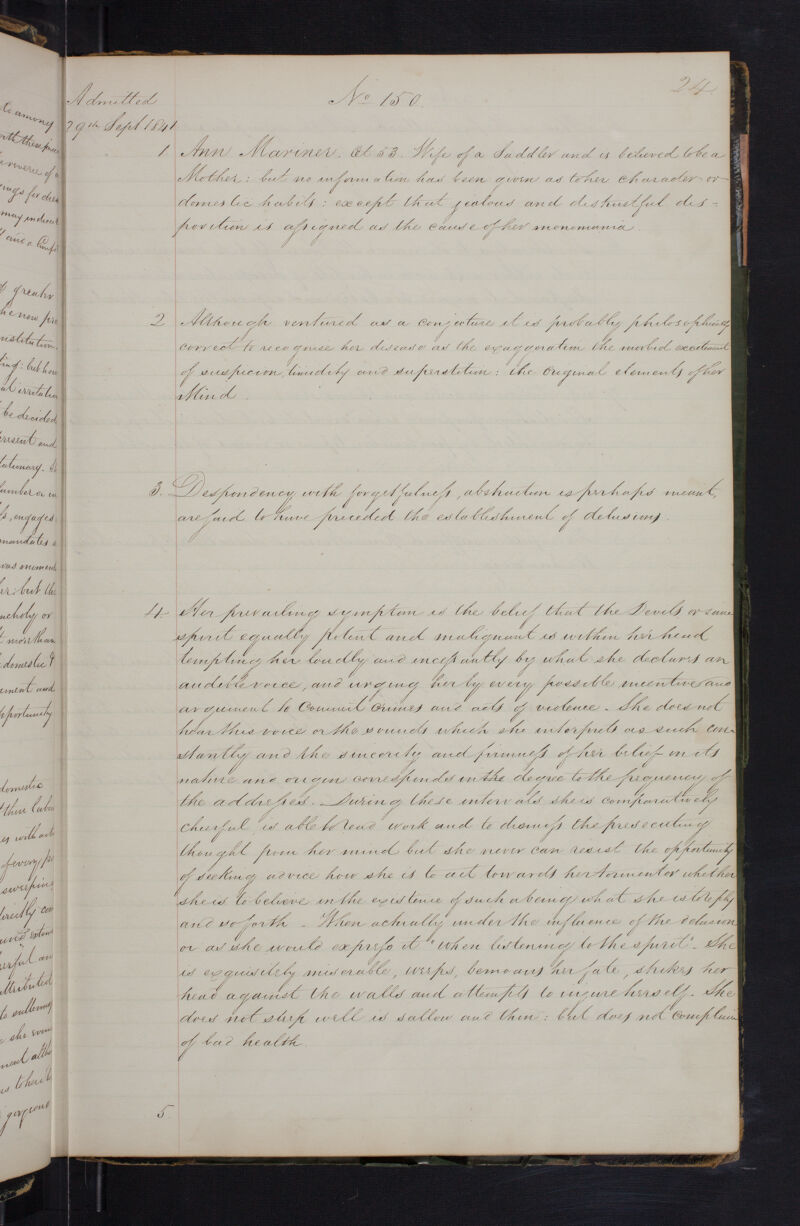 24
Admitted
No 150.
29th Sept 1841
1 Ann Mariner. Æt 53. Wife of a Saddler and is believed to be a
Mother: but no information has been given as to her character or
domestic habits: except that jealous and distrustful dis=
position is assigned as the cause of her monomania.
2 Although ventured as a conjecture it is probably philosophically
correct to recognise her disease as the exaggeration the morbid excitement
of suspicion, timidity and superstition: the original elements of her
Mind
3. Despondency with forgetfulness, abstraction is perhaps meant,
are said to have preceded the establishment of delusions.
4 Her prevailing symptom is the belief that the Devils or some
spirit equally potent and malignant is within her head
tempting her loudly and incessantly by what she declares an
audible voice, and urging her by every possible incentive and
argument to commit crimes and acts of violence. She does not
hear this voice or the sounds which she interprets as such con-
stantly and the sincerity and firmness of her belief in its
nature and origin correspondes in the degree to the frequency of
the addresses. During these intervals she is comparatively
cheerful, is able to read work and to dismiss the persecuting
thought from her mind but she never can resist the opportunity
of seeking advice how she is to act towards her tormentor whether
she is to believe in the existence of such a being what she is to reply
and so forth. When actually under the influence of the delusion
or as she would express it "when listening to the spirit". She
is exquisitely miserable, weeps, bemoans her fate, strikes her
head against the walls and attempts to injure herself. She
does not sleep well is sallow and thin: but does not complain
of bad health.
5